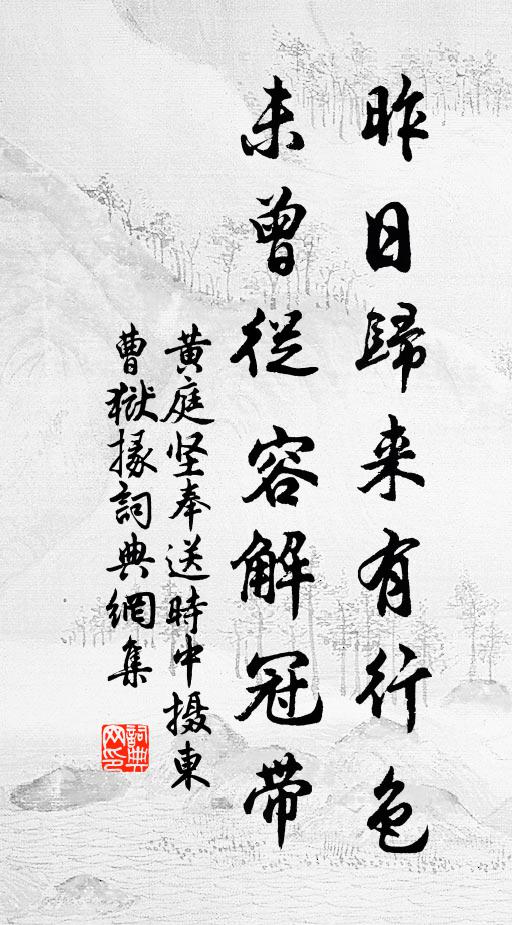 昨日歸来有行色
未曾從容解冠帶
黃庭坚奉送時中摄東
曹獄掾詞典網集
詞典网印